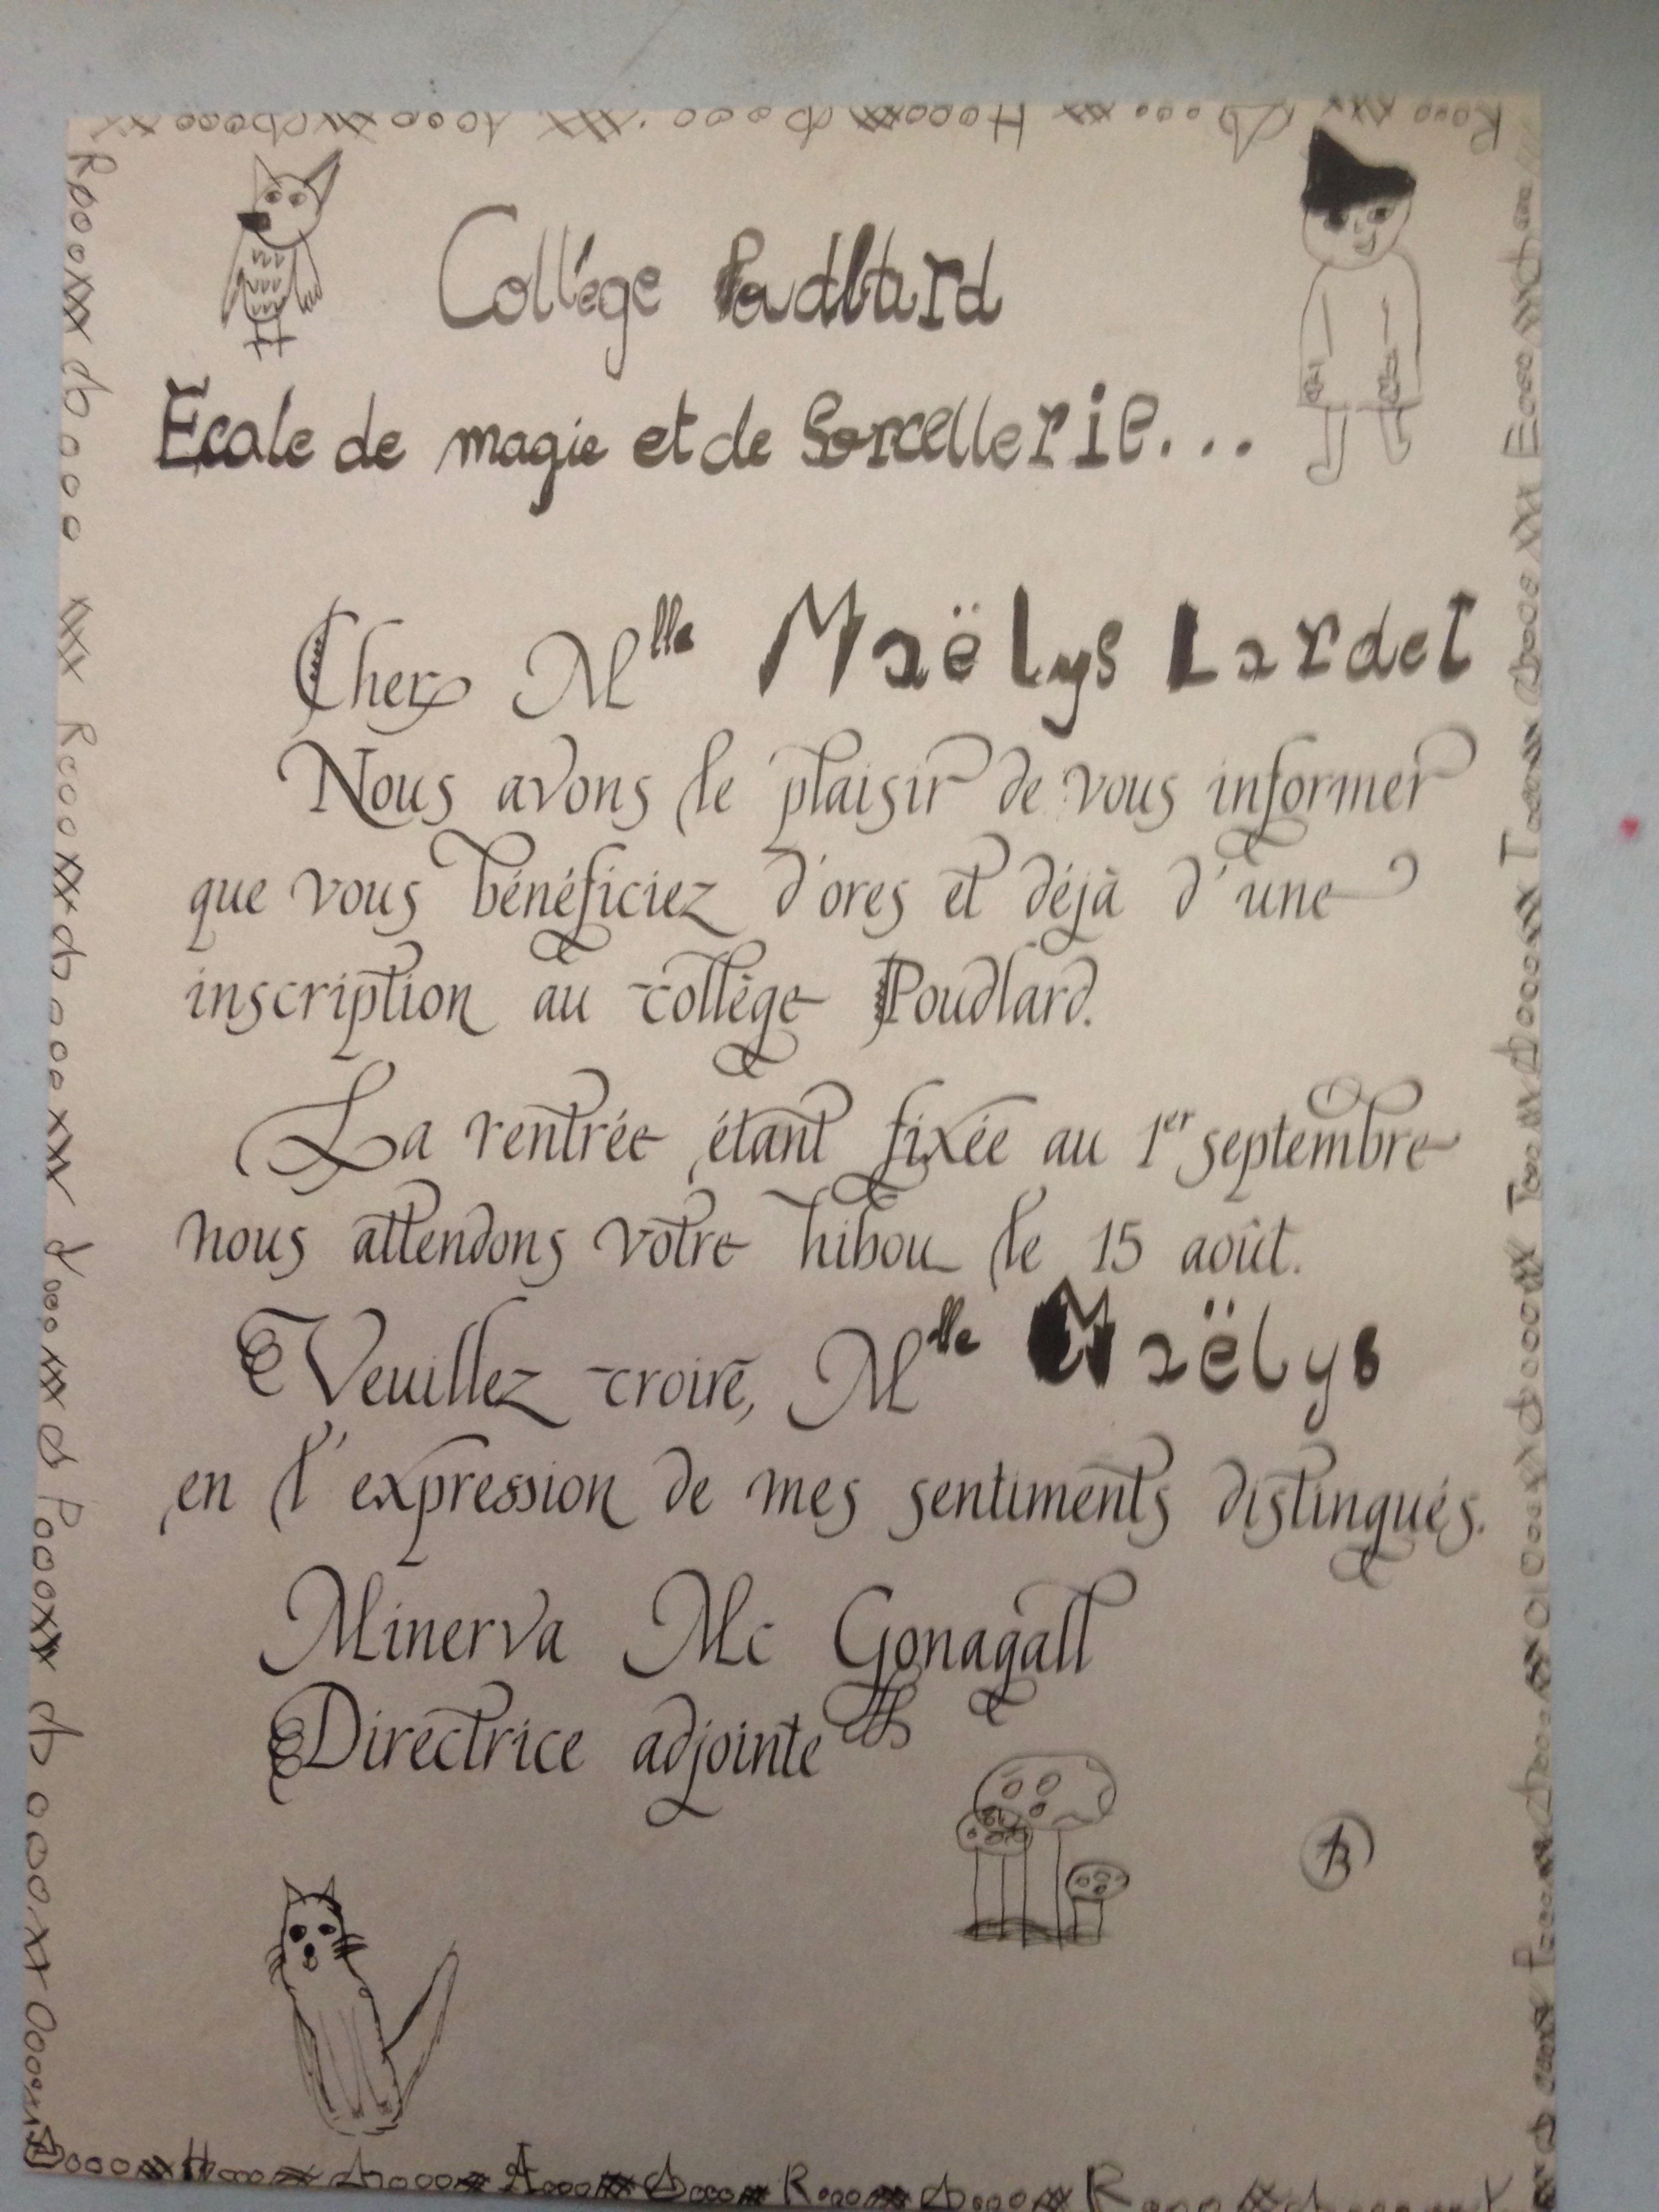 Collège Poudlard
Ecole de magie et de Sorcellerie...
Cher Mlle Maëlys Lardet
Nous avons le plaisir de vous informer
que vous bénéficiez d'ores et déjà d'une
inscription au collège Poudlard.
La rentrée étant fixée au 1er septembre
nous attendons votre hibou le 15 août.
Veuillez croire, Mlle Maëlys
en l'expression de mes sentiments distingués.
Minerva Mc Gonagall
Directrice adjointe